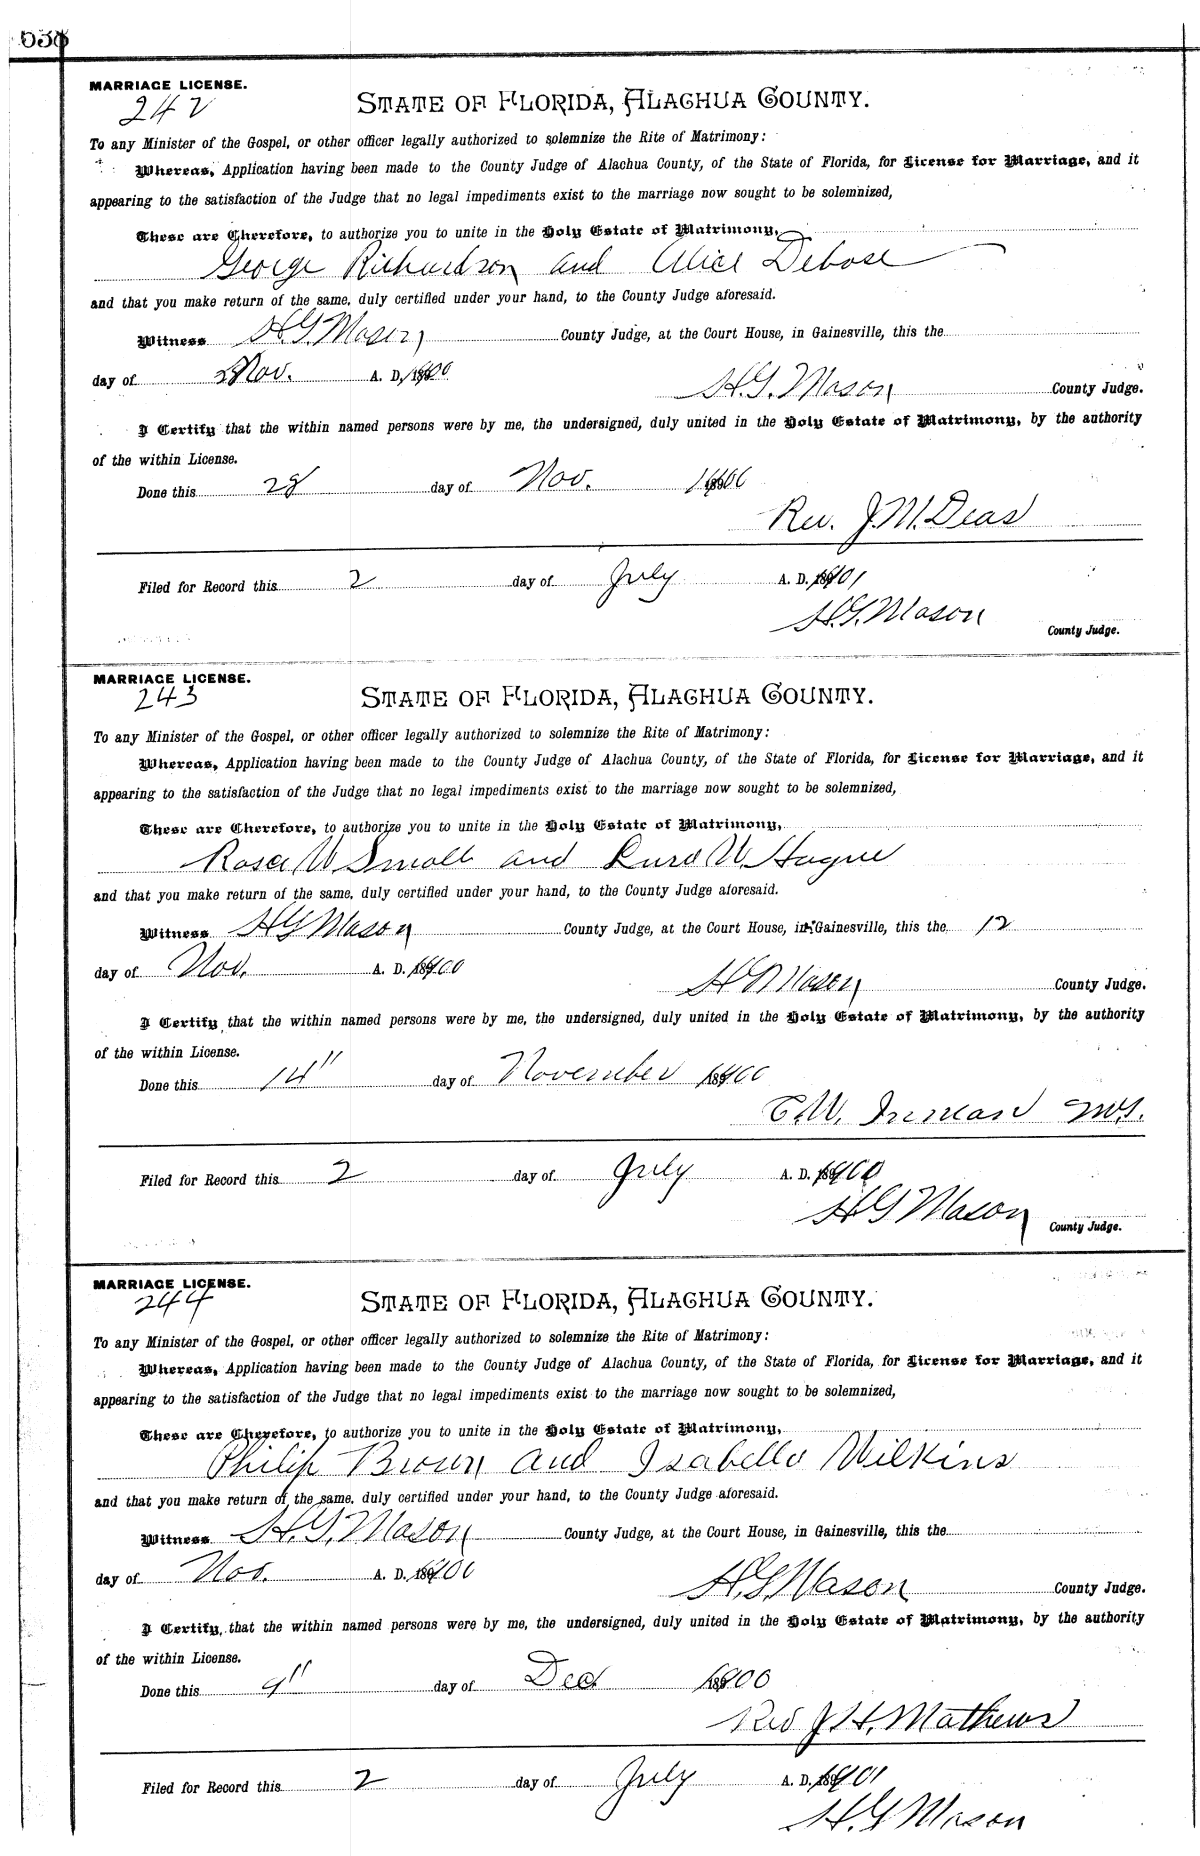 638
MARRIAGE LICENSE.
242
STATE OF FLORIDA, ALACHUA COUNTY.
To any Minister of the Gospel, or other officer legally authorized to solemnize the Rite of Matrimony:
Whereas, Application having been made to the County Judge of Alachua County, of the State of Florida, for License for Marriage, and it
appearing to the satisfaction of the Judge that no legal impediments exist to the marriage now sought to be solemnized,
These are Therefore, to authorize you to unite in the Holy Estate of Matrimony,
George Richardson and Alice Debose
and that you make return of the same, duly certified under your hand, to the County Judge aforesaid.
Witness H.G. Mason County Judge, at the Court House, in Gainesville, this the
day of Nov. A. D. 1900
H.G. Mason County Judge.
I Certify that the within named persons were by me, the undersigned, duly united in the Holy Estate of Matrimony, by the authority
of the within License.
Done this 28 day of Nov. 1900
Rev. J.M. Deas
Filed for Record this 2 day of July A. D. 1901
H.G. Mason
County Judge.
MARRIAGE LICENSE.
243
STATE OF FLORIDA, ALACHUA COUNTY.
To any Minister of the Gospel, or other officer legally authorized to solemnize the Rite of Matrimony:
Whereas, Application having been made to the County Judge of Alachua County, of the State of Florida, for License for Marriage, and it
appearing to the satisfaction of the Judge that no legal impediments exist to the marriage now sought to be solemnized,
These are Therefore, to authorize you to unite in the Holy Estate of Matrimony,
W Small and W. Hague
and that you make return of the same, duly certified under your hand, to the County Judge aforesaid.
Witness H G Mason County Judge, at the Court House, in Gainesville, this the 12
day of Nov. A. D. 1900
H G Mason County Judge.
I Certify that the within named persons were by me, the undersigned, duly united in the Holy Estate of Matrimony, by the authority
of the within License.
Done this 14" day of November 1900
W.
Filed for Record this 2 day of July A. D. 1900
H G Mason
County Judge.
MARRIAGE LICENSE.
244
STATE OF FLORIDA, ALACHUA COUNTY.
To any Minister of the Gospel, or other officer legally authorized to solemnize the Rite of Matrimony:
Whereas, Application having been made to the County Judge of Alachua County, of the State of Florida, for License for Marriage, and it
appearing to the satisfaction of the Judge that no legal impediments exist to the marriage now sought to be solemnized,
These are Therefore, to authorize you to unite in the Holy Estate of Matrimony,
Philip Brown and Isabella Wilkins
and that you make return of the same, duly certified under your hand, to the County Judge aforesaid.
Witness H.G. Mason County Judge, at the Court House, in Gainesville, this the
day of Nov. A. D. 1900
H.G. Mason County Judge.
I Certify, that the within named persons were by me, the undersigned, duly united in the Holy Estate of Matrimony, by the authority
of the within License.
Done this 9" day of Dec 1900
Rev J.H. Mathews
Filed for Record this 2 day of July A. D. 1901
H.G Mason